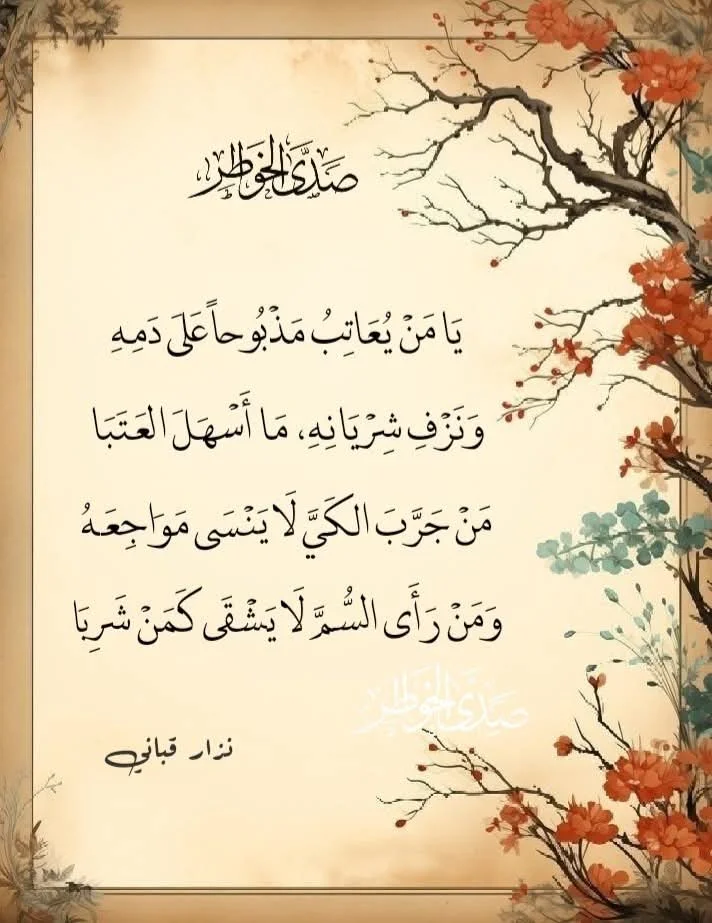 صَدَى الخَوَاطِر
يَا مَنْ يُعَاتِبُ مَذْبُوحاً عَلَى دَمِهِ
وَنَزْفِ شِرْيَانِهِ، مَا أَسْهَلَ العَتَبَا
مَنْ جَرَّبَ الكَيَّ لَا يَنْسَى مَوَاجِعَهُ
وَمَنْ رَأَى السُّمَّ لَا يَشْقَى كَمَنْ شَرِبَا
صَدَى الخَوَاطِر
نزار قباني